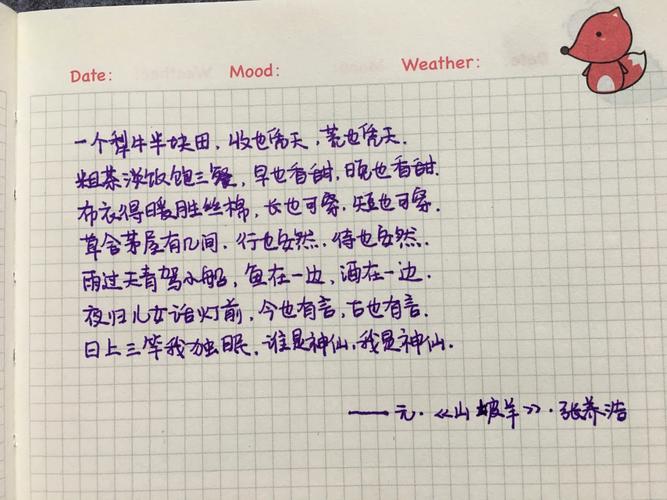 Date: Mood: Weather:
一个犁牛半块田，收也凭天，荒也凭天.
粗茶淡饭饱三餐，早也香甜，晚也香甜.
布衣得暖胜丝棉，长也可穿，短也可穿.
草舍茅屋有几间，行也安然，待也安然.
雨过天青驾小船，鱼在一边，酒在一边.
夜归儿女话灯前，今也有言，古也有言.
日上三竿我独眠，谁是神仙，我是神仙.
——元·《山坡羊》·张养浩